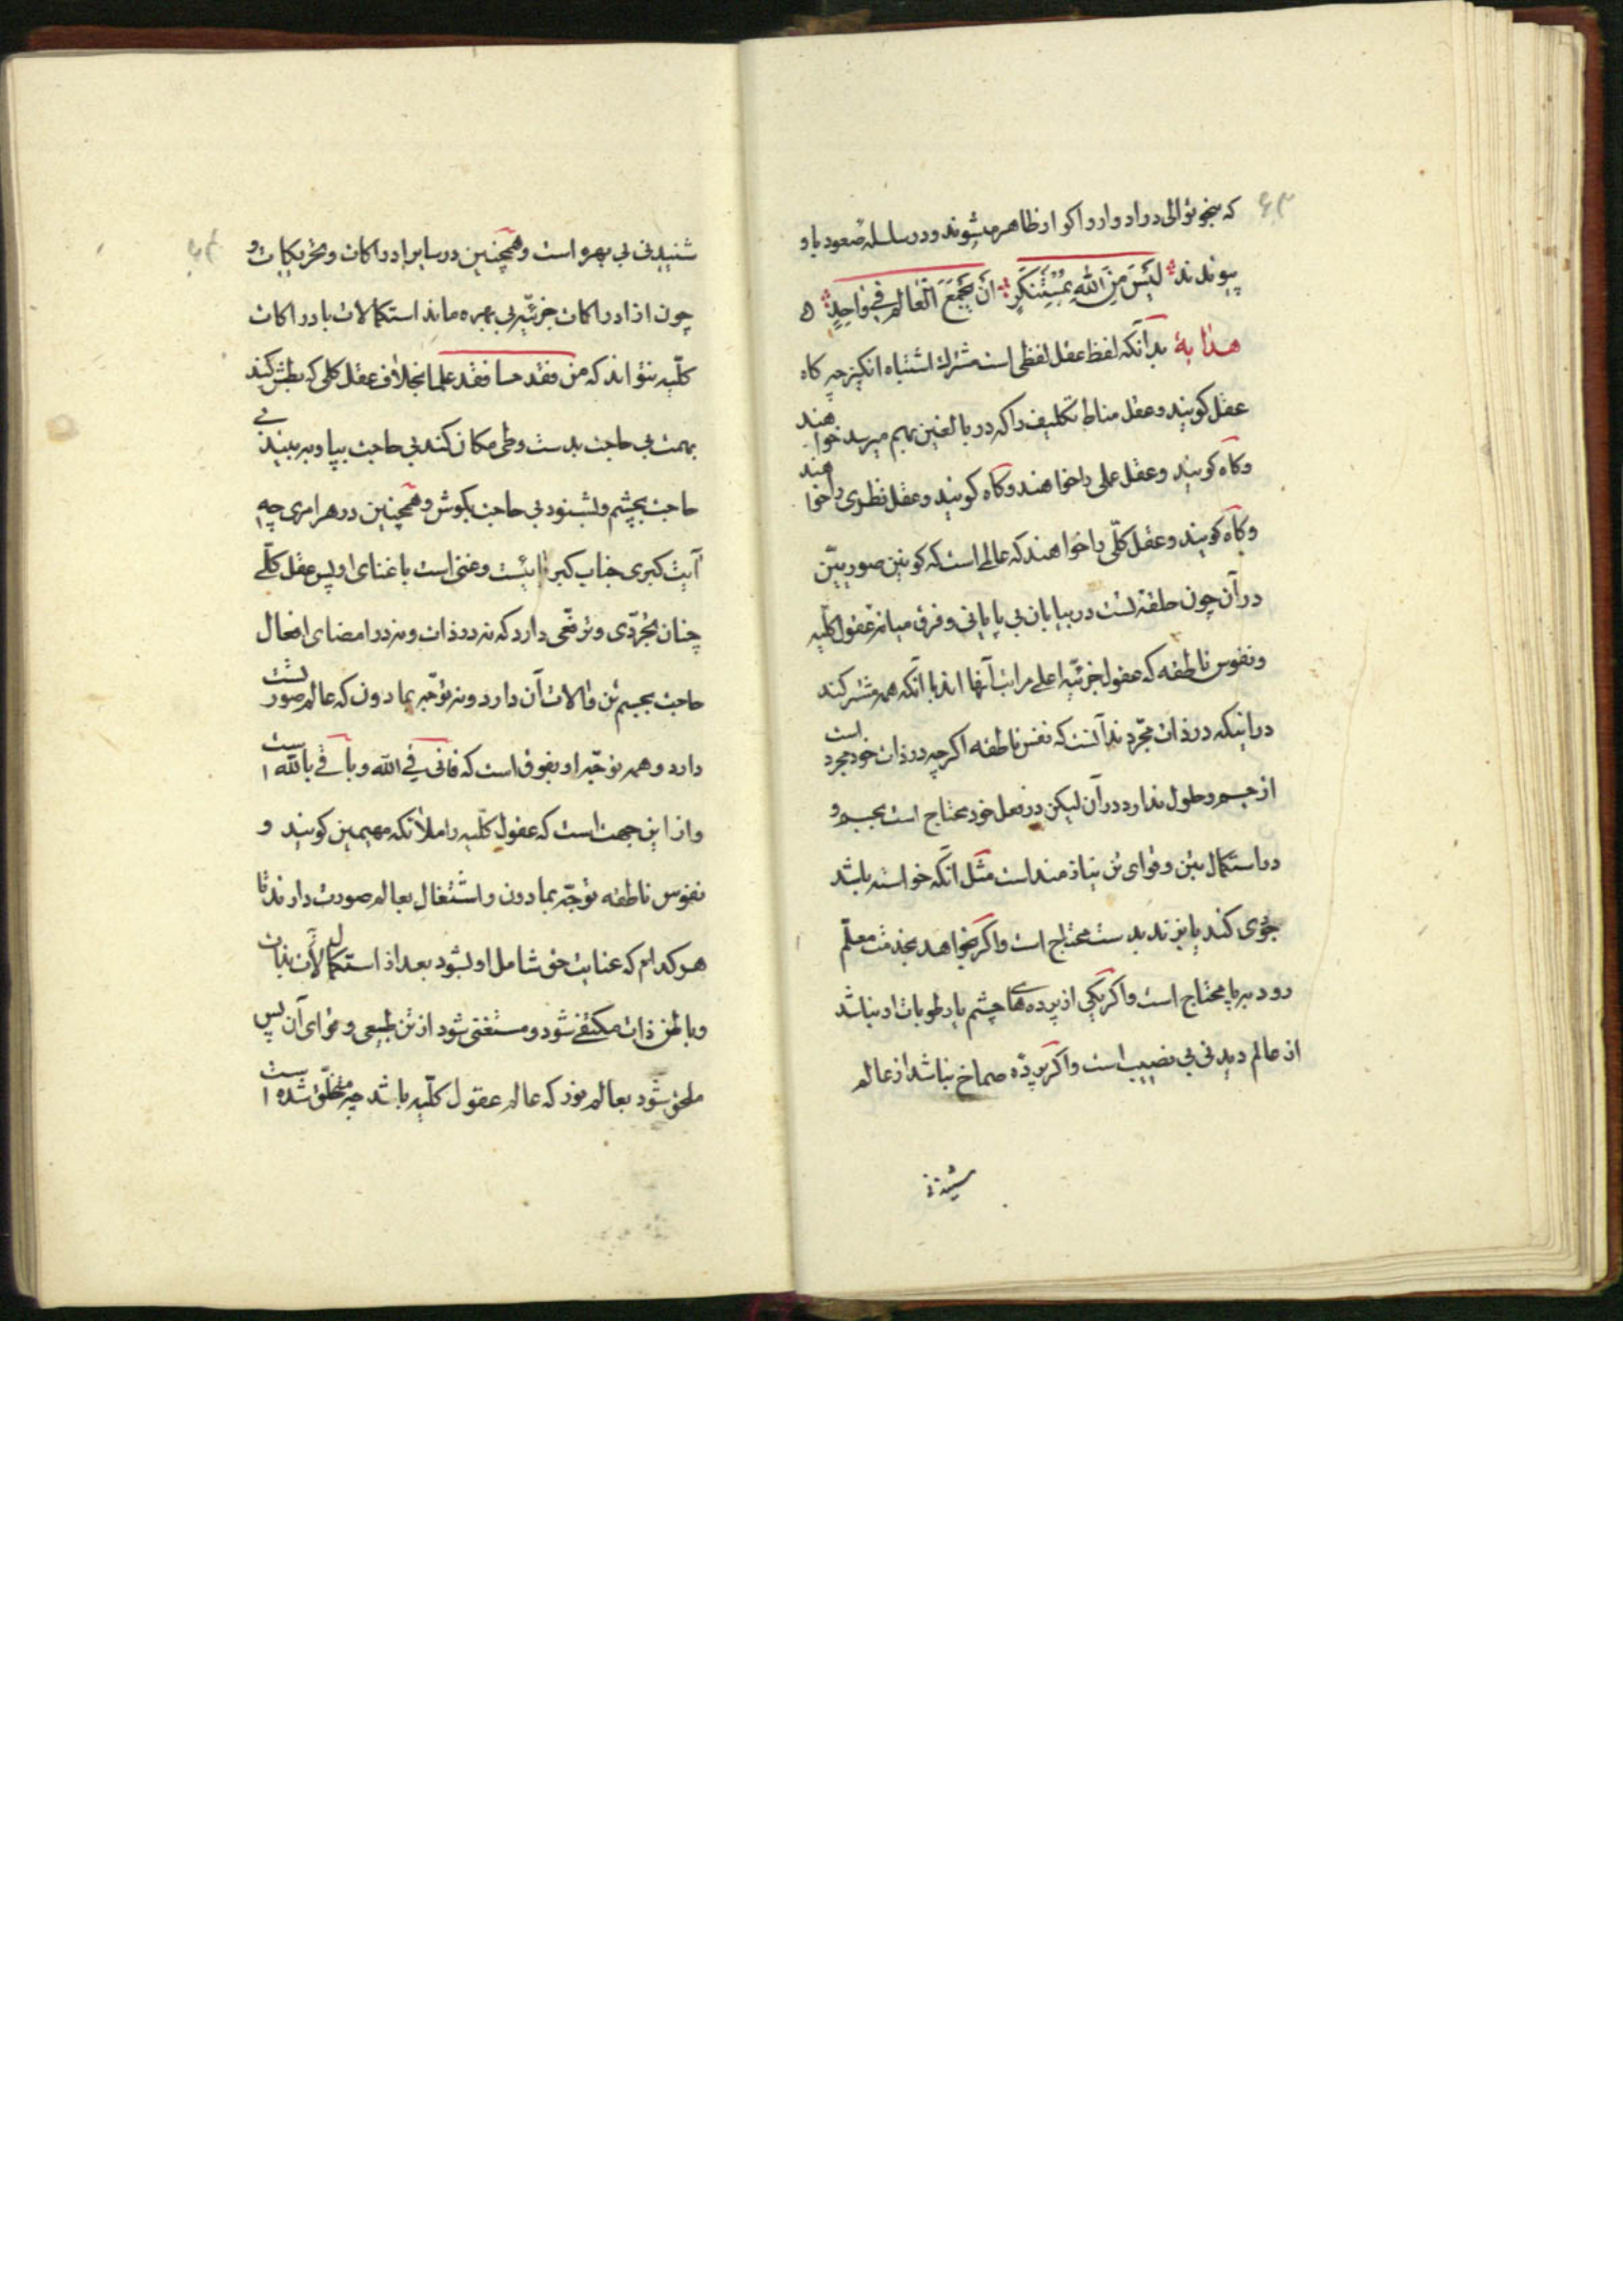 که بنحو توالی در ادوار و اکوار ظاهر میشوند و در سلسله صعود باو
پیوندند لَیْسَ مِنَ اللّٰهِ بِمُسْتَنْکَرٍ اَنْ یَجْمَعَ الْعٰالَمَ فِی وٰاحِدٍ ۵
هدایهٔ بدآنکه لفظ عقل لفظی است مشترك اشتباه انکیز چه کاه
عقل کویند و عقل مناط تکلیف را که در بالغین بهم میرسد خواهند
وکاه کویند و عقل عملی را خواهند وکاه کویند و عقل نظری را خواهند
وکاه کویند و عقل کلّی را خواهند که عالمی است که کونین صوریّین
در آن چون حلقهٔ است در بیابان بی پایانی و فرق میانه عقول کلّیه
و نفوس ناطقه که عقول جزئیّه اعلی مراتب آنها اند با آنکه همه مشترکند
در اینکه در ذات مجرّدند آنست که نفس ناطقه اکرچه در ذات خود مجرد است
از جسم و حلول ندارد در آن لیکن در فعل خود محتاج است بجسم و
در استکمال بتن و قوای تن نیازمند است مثل آنکه خواسته باشد
جوی کند یا بزند بدست محتاج است واکر بخواهد بخدمت معلّم
رود بپا محتاج است واکر یکی از پرده های چشم یا رطوبات او نباشد
از عالم دیدنی بی نصیب است واکر پردّه صماخ نباشد از عالم
شنیدنی
۶۳
شنیدنی بی بهره است وهمچنین در سایر ادراکات و تحریکات و
چون از ادراکات جزئیّه بی بهره ماند استکمالات بادراکات
کلّیه نتواند که من فقد حسا فقد علما بخلاف عقل کلی که بطش کند
بهمت بی حاجت بدست وطی مکان کند بی حاجت بپا و ببیند بی
حاجت بچشم و بشنود بی حاجت بکوش وهمچنین در هر امری چه
آیت کبری جناب کبریائیست و غنی است با غنای او پس عقل کلّی
چنان تجرّدی و ترفّعی دارد که نه در ذات و نه در امضای افعال
حاجت بجسم تن و آلات آن دارد و نه توجّه بما دون که عالم صور تست
دارد و همه توجّه او بفوق است که فانی فی الله و باقی بالله است
و از این جهت است که عقول کلّیه را ملائکه مهیمین کویند و
نفوس ناطقه توجّه بمادون و اشتغال بعالم صورت دارند تا
هر کدام که عنایت حق شامل او بشود بعد از استکمالات بذات
و باطن ذات مکتفی شود و مستغنی شود از تن طبیعی و قوای آن پس
ملحق شود بعالم نور که عالم عقول کلّیه باشد چه متخلّق شده است